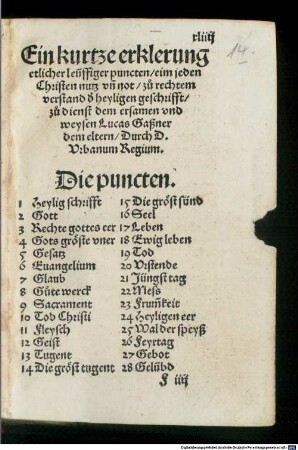 xliiij
14.
Ein kurtze erklerung
etlicher leüffiger puncten/eim jeden
Christen nutz vn̄ not/zů rechtem
verstand d̕ heyligen geschrifft/
zů dienst dem ersamen vnd
weysen Lucas Gaßner
dem eltern/Durch D.
Vrbanum Regium.
Die puncten.
1 Heylig schrifft 15 Die gröst sünd
2 Gott 16 Seel
3 Rechte gottes eer 17 Leben
4 Gots gröste vner 18 Ewig leben
5 Gesatz 19 Tod
6 Euangelium 20 Vrstende
7 Glaub 21 Jüngst tag
8 Güte werck 22 Meß
9 Sacrament 23 Frum̄keit
10 Tod Christi 24 Heyligen eer
11 Fleysch 25 Wal der speyß
12 Geist 26 Feyrtag
13 Tugent 27 Gebot
14 Die gröst tugent 28 Gelübd
F iiij